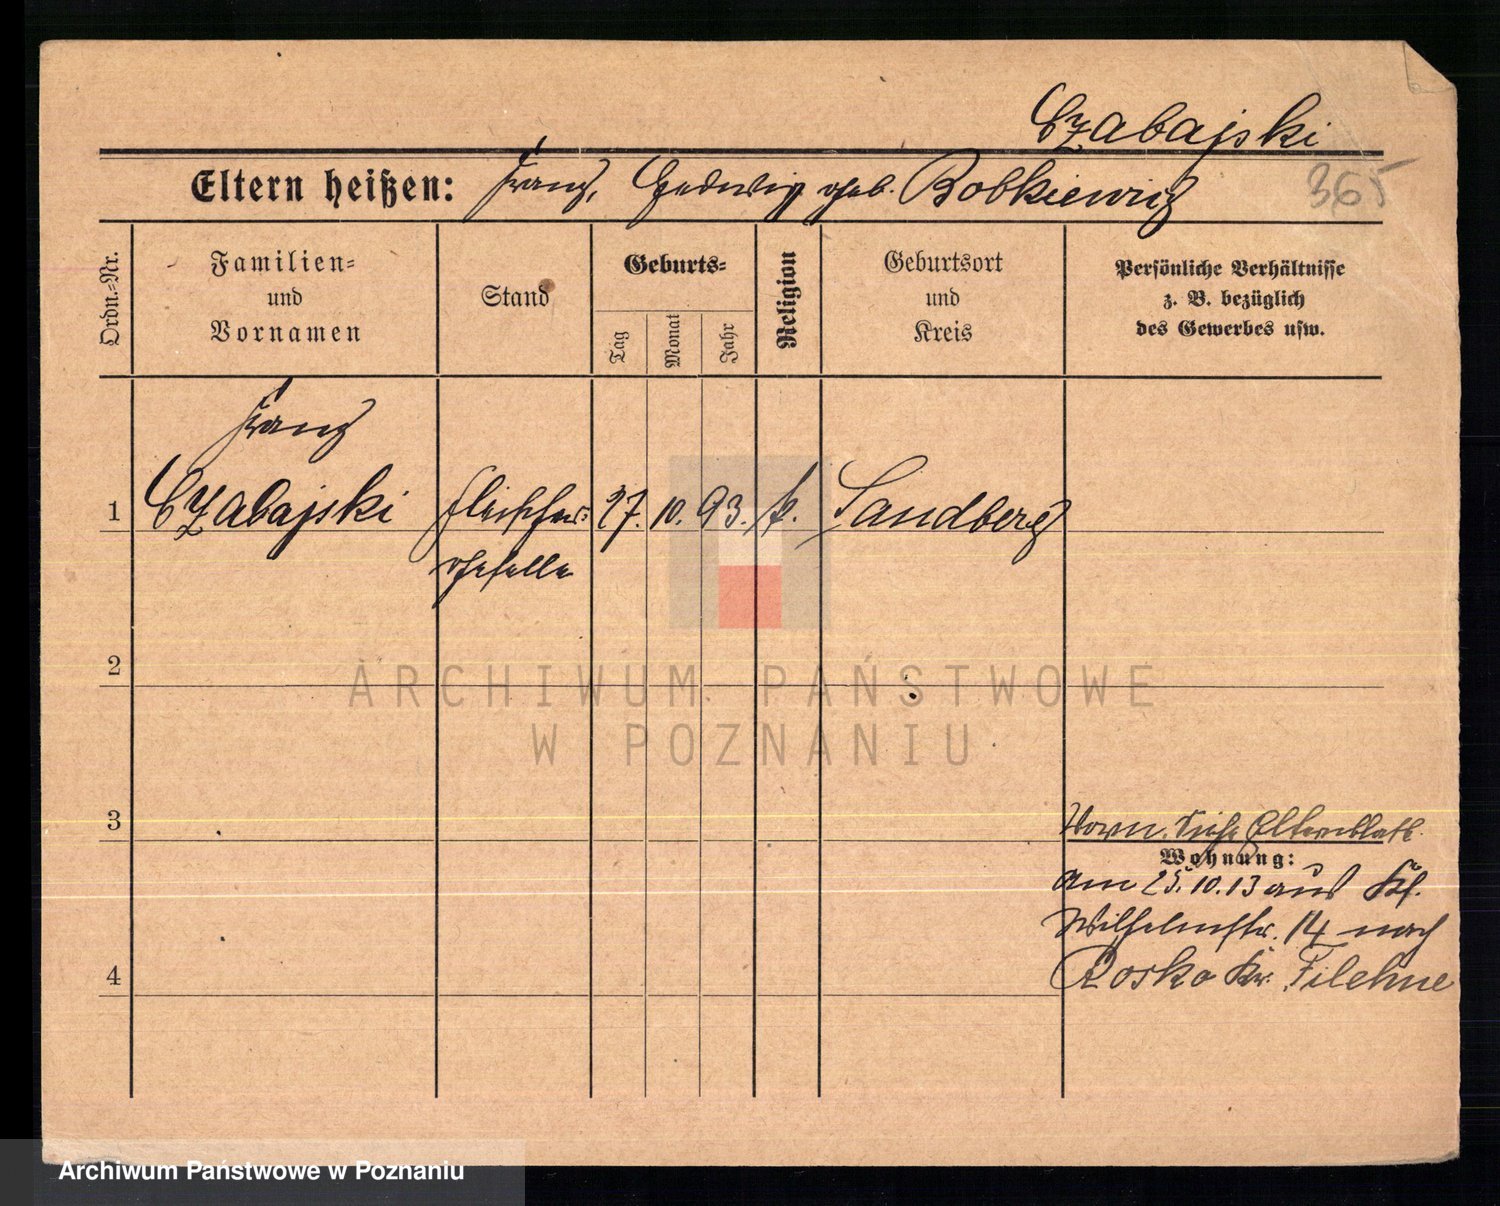 Czabajski
Eltern heißen: Franz, Hedwig geb. Bobkiewicz
365
Ordn.=Nr.
Familien=
und
Vornamen
Stand
Geburts=
Tag
Monat
Jahr
Religion
Geburtsort
und
Kreis
Persönliche Verhältnisse
z. B. bezüglich
des Gewerbes usw.
Franz
1 Czabajski Fleischer= 27. 10. 93. k. Sandberg
geselle
2
ARCHIWUM PAŃSTWOWE
W POZNANIU
3
Vorm. siehe Elternblatt.
Wohnung:
am 25.10.13 aus Kl.
Wilhelmstr. 14 nach
Rosko Kr. Filehne
4
Archiwum Państwowe w Poznaniu